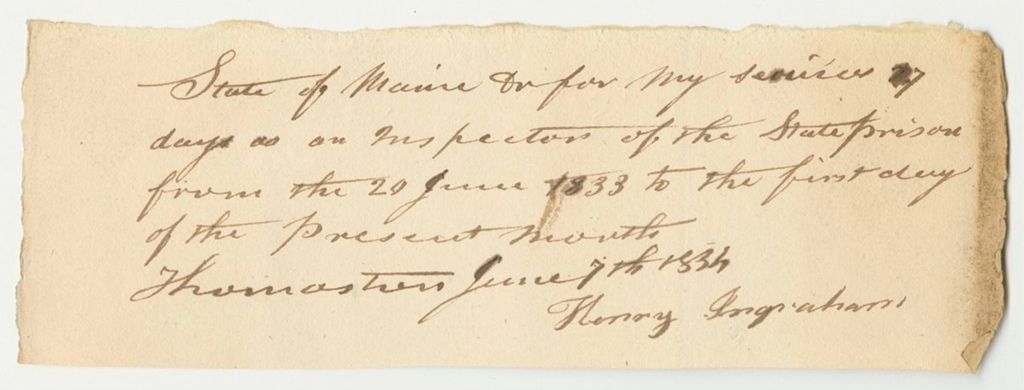 State of Maine Dr for my services 27
days as an Inspector of the State prison
from the 20 June 1833 to the first day
of the Present month
Thomaston June 7th 1834
Henry Ingraham